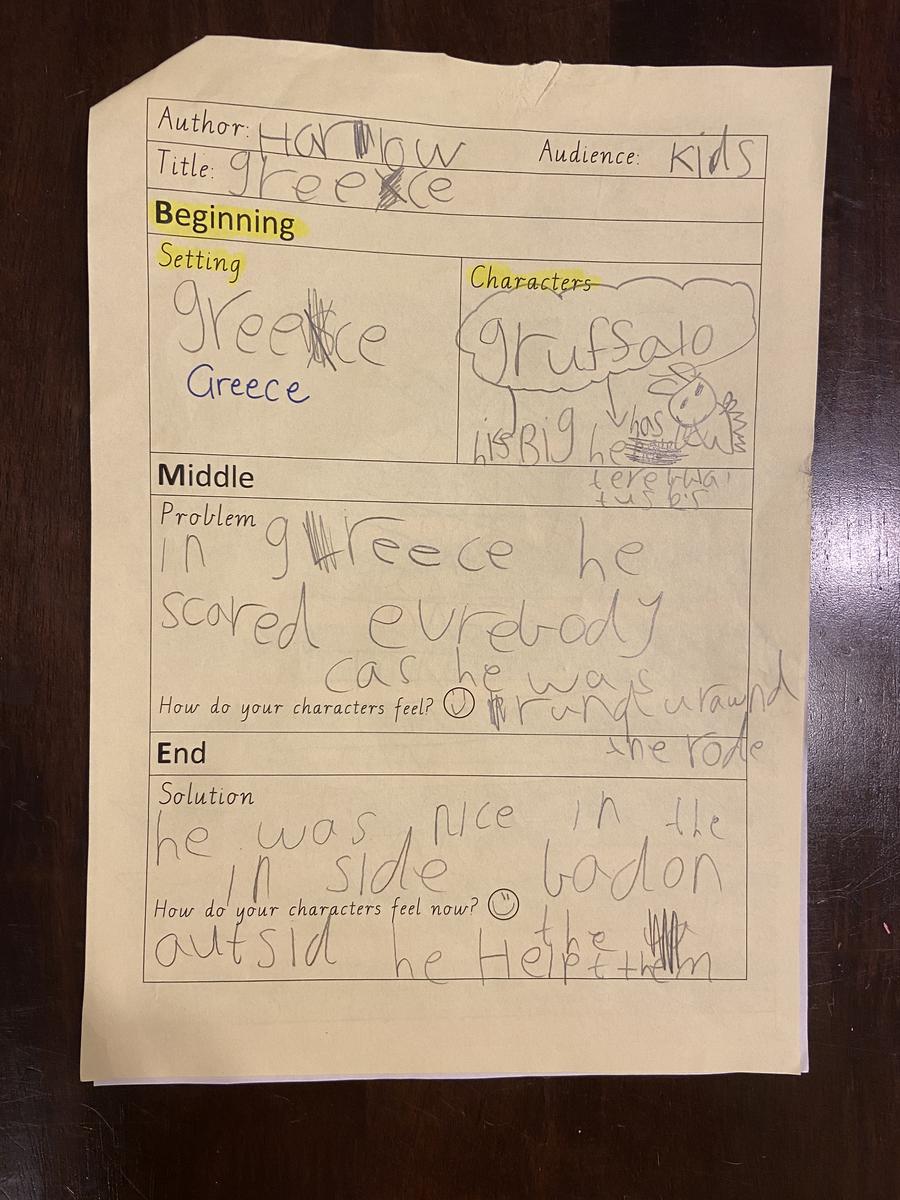 Author: Harlow Audience: kids
Title: greece
Beginning
Setting Characters
greece
Greece
gruffalo
his Big he has
Middle
Problem
in greece he
scared eurebody
cas he was
How do your characters feel? urawnd
the rode
End
Solution
he was nice in the
in side bad on
How do your characters feel now? the
autsid he Helpt them